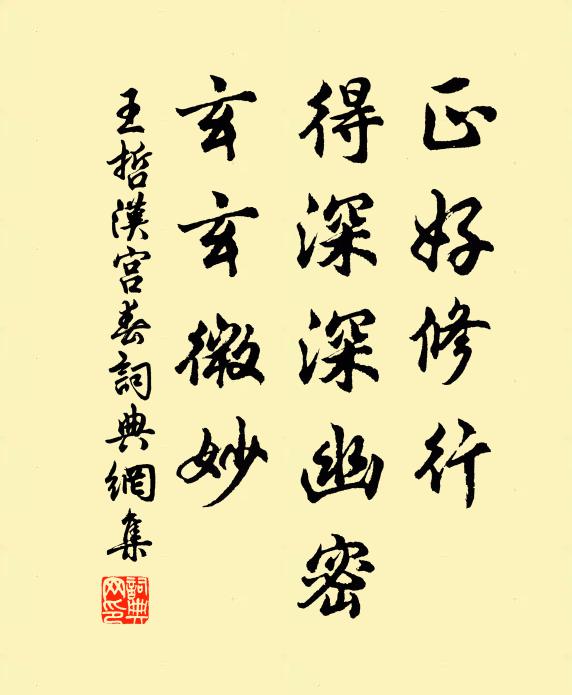 正好修行
得深深幽密
玄玄微妙
王哲漢宮春詞典網集
詞典网印